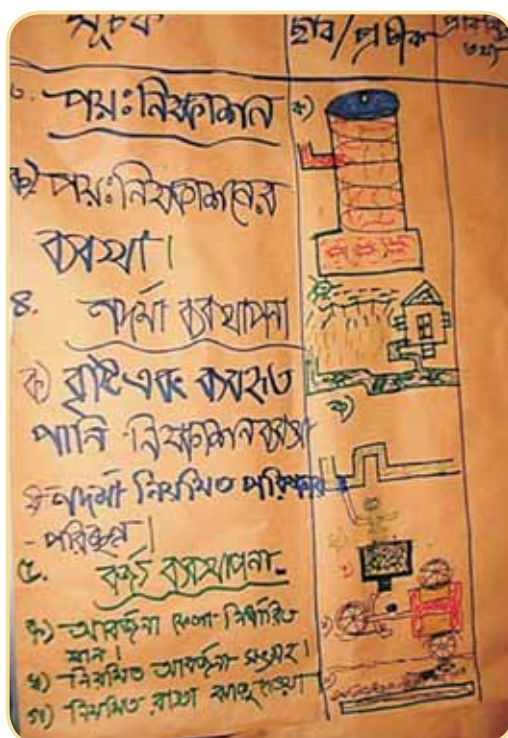 সূচক
ছবি/প্রতীক
প্রাপ্ত
তথ্য
৩. পয়ঃনিষ্কাশন
ক) পয়ঃনিষ্কাশনের
ব্যবস্থা।
৪. নর্দমা ব্যবস্থাপনা
ক) বৃষ্টি এবং ব্যবহৃত
পানি নিষ্কাশন ব্যবস্থা
খ) নর্দমা নিয়মিত পরিষ্কার
- পরিচ্ছন্ন।
৫. বর্জ্য ব্যবস্থাপনা-
ক) আবর্জনা ফেলা নির্ধারিত
স্থান।
খ) নিয়মিত আবর্জনা সংগ্রহ।
গ) নিয়মিত রাস্তা ঝাড়ু দেওয়া
ক)
ক)
খ)